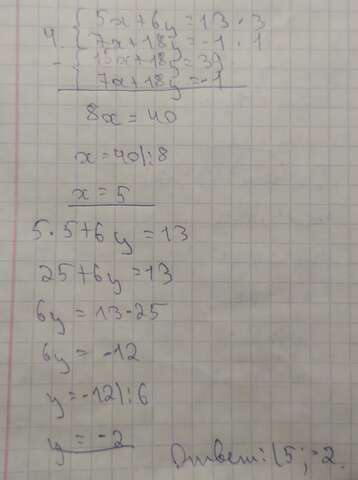 4 { 5x+6y=13 · 3
7x+18y=-1 · 1
- { 15x+18y=39
7x+18y=-1
8x=40
x=40|:8
x=5
5·5+6y=13
25+6y=13
6y=13-25
6y=-12
y=-12|:6
y=-2
Ответ: (5;-2